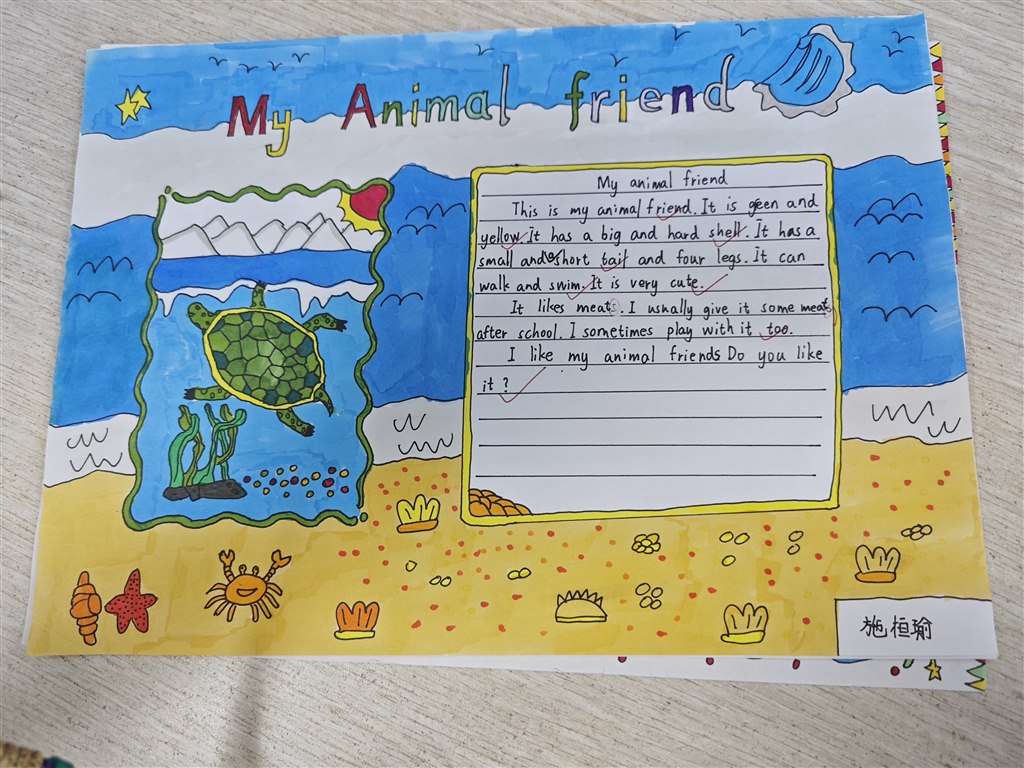 My Animal friend
My animal friend
This is my animal friend. It is geen and
yellow. It has a big and hard shell. It has a
small and short tail and four legs. It can
walk and swim. It is very cute.
It likes meat. I usually give it some meat
after school. I sometimes play with it too.
I like my animal friends Do you like
it ?
施桓瑜